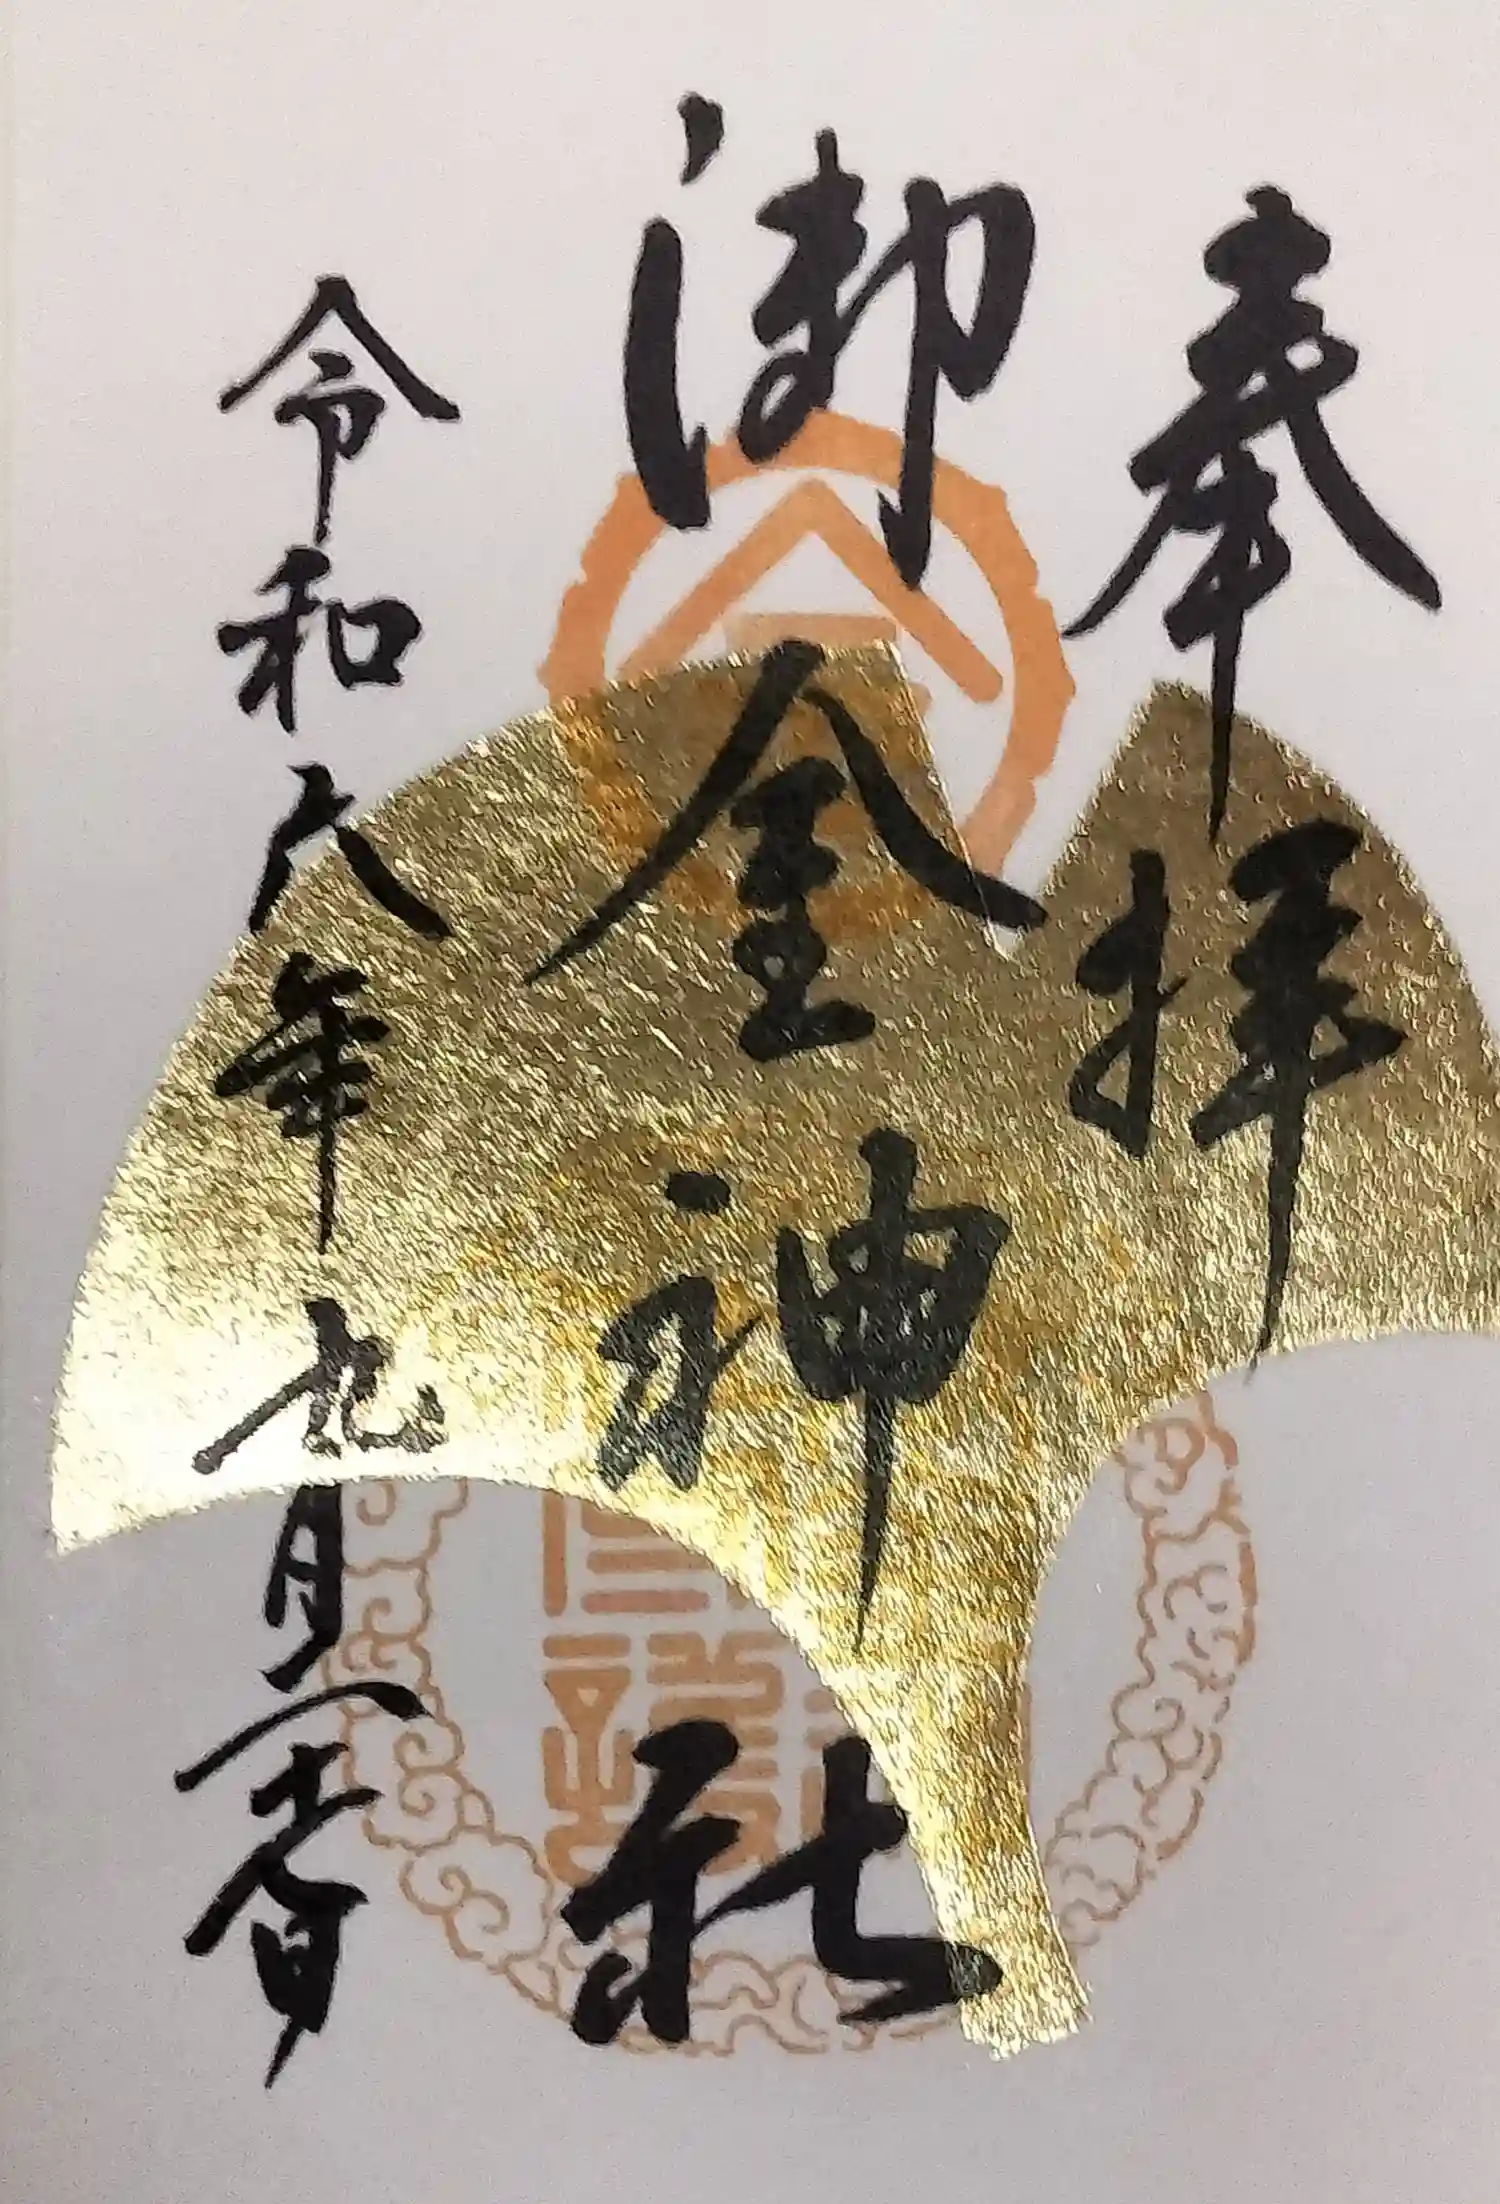 奉拝
御金神社
令和六年九月